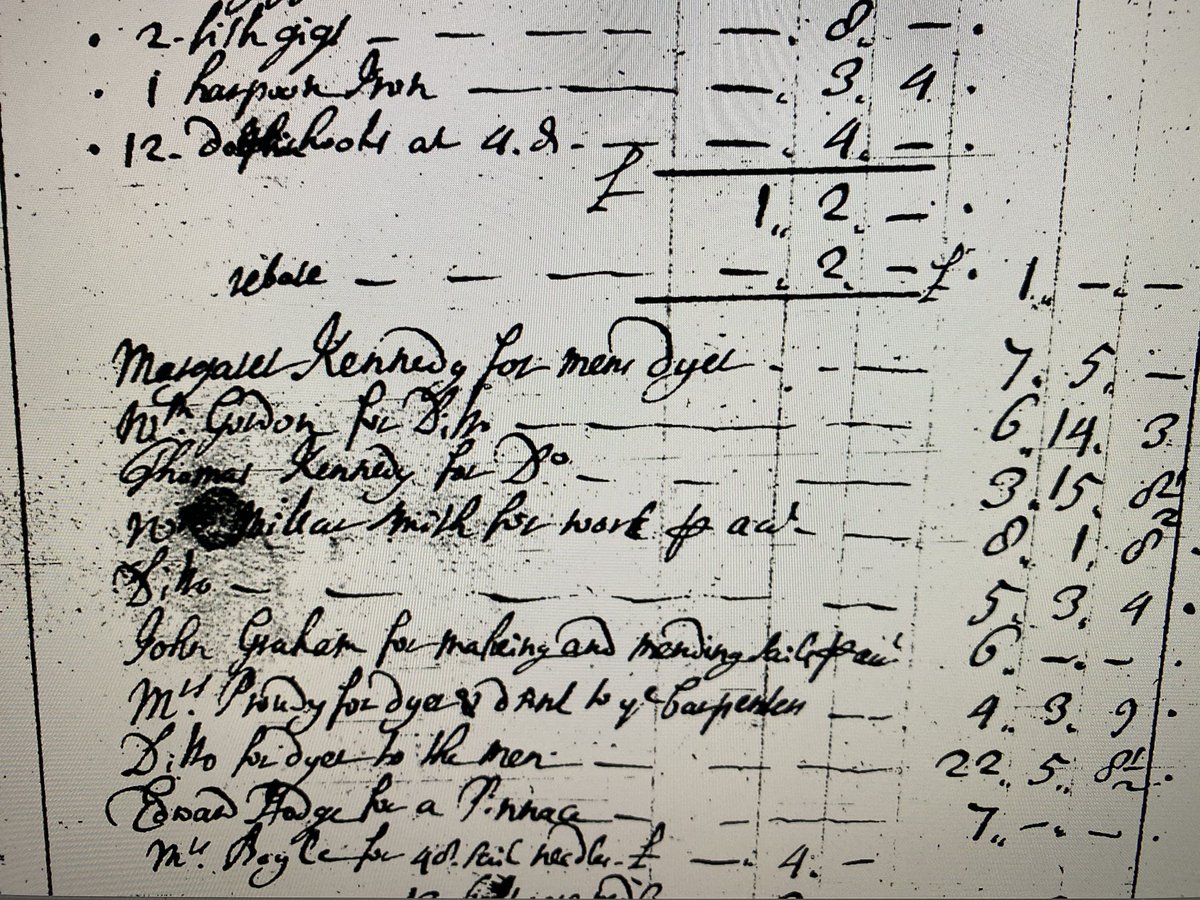 • 2 - fish gigs — — — — — —. 8. — •
• 1 harpoon Iron — — —. 3. 4. •
• 12 - dolphinhooks at 4. d. — —. 4. — •
£ 1,, 2. — •
rebate — — — —. 2. — £ • 1,, —. —
Margaret Kennedy for mens dyet . - — 7. 5. —
Wm. Gordon for Ditto — — — — 6,, 14. 3
Thomas Kennedy for Do — — — 3. 15. 8 1/2
Millar smith for work ⅌ acct — — 8. 1. 8 •
Ditto — — — — 5. 3. 4 •
John Graham for making and mending sails ⅌ acct 6. —. — •
Mrs. Proudy for dyet & drink to ye Carpenters — — 4. 3. 9 •
Ditto for dyet to the men — — — — 22,, 5,, 8 1/2 •
Edward Hodge for a Pinnace — — 7,, —. — •
Mrs. Boyle for 48. sail needles - £ —. 4. —